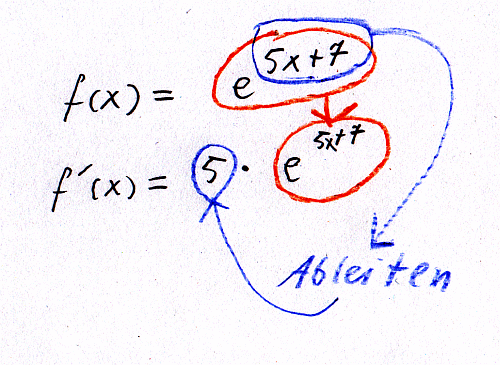 f(x) = e^{5x+7}
f'(x) = 5 · e^{5x+7}
Ableiten